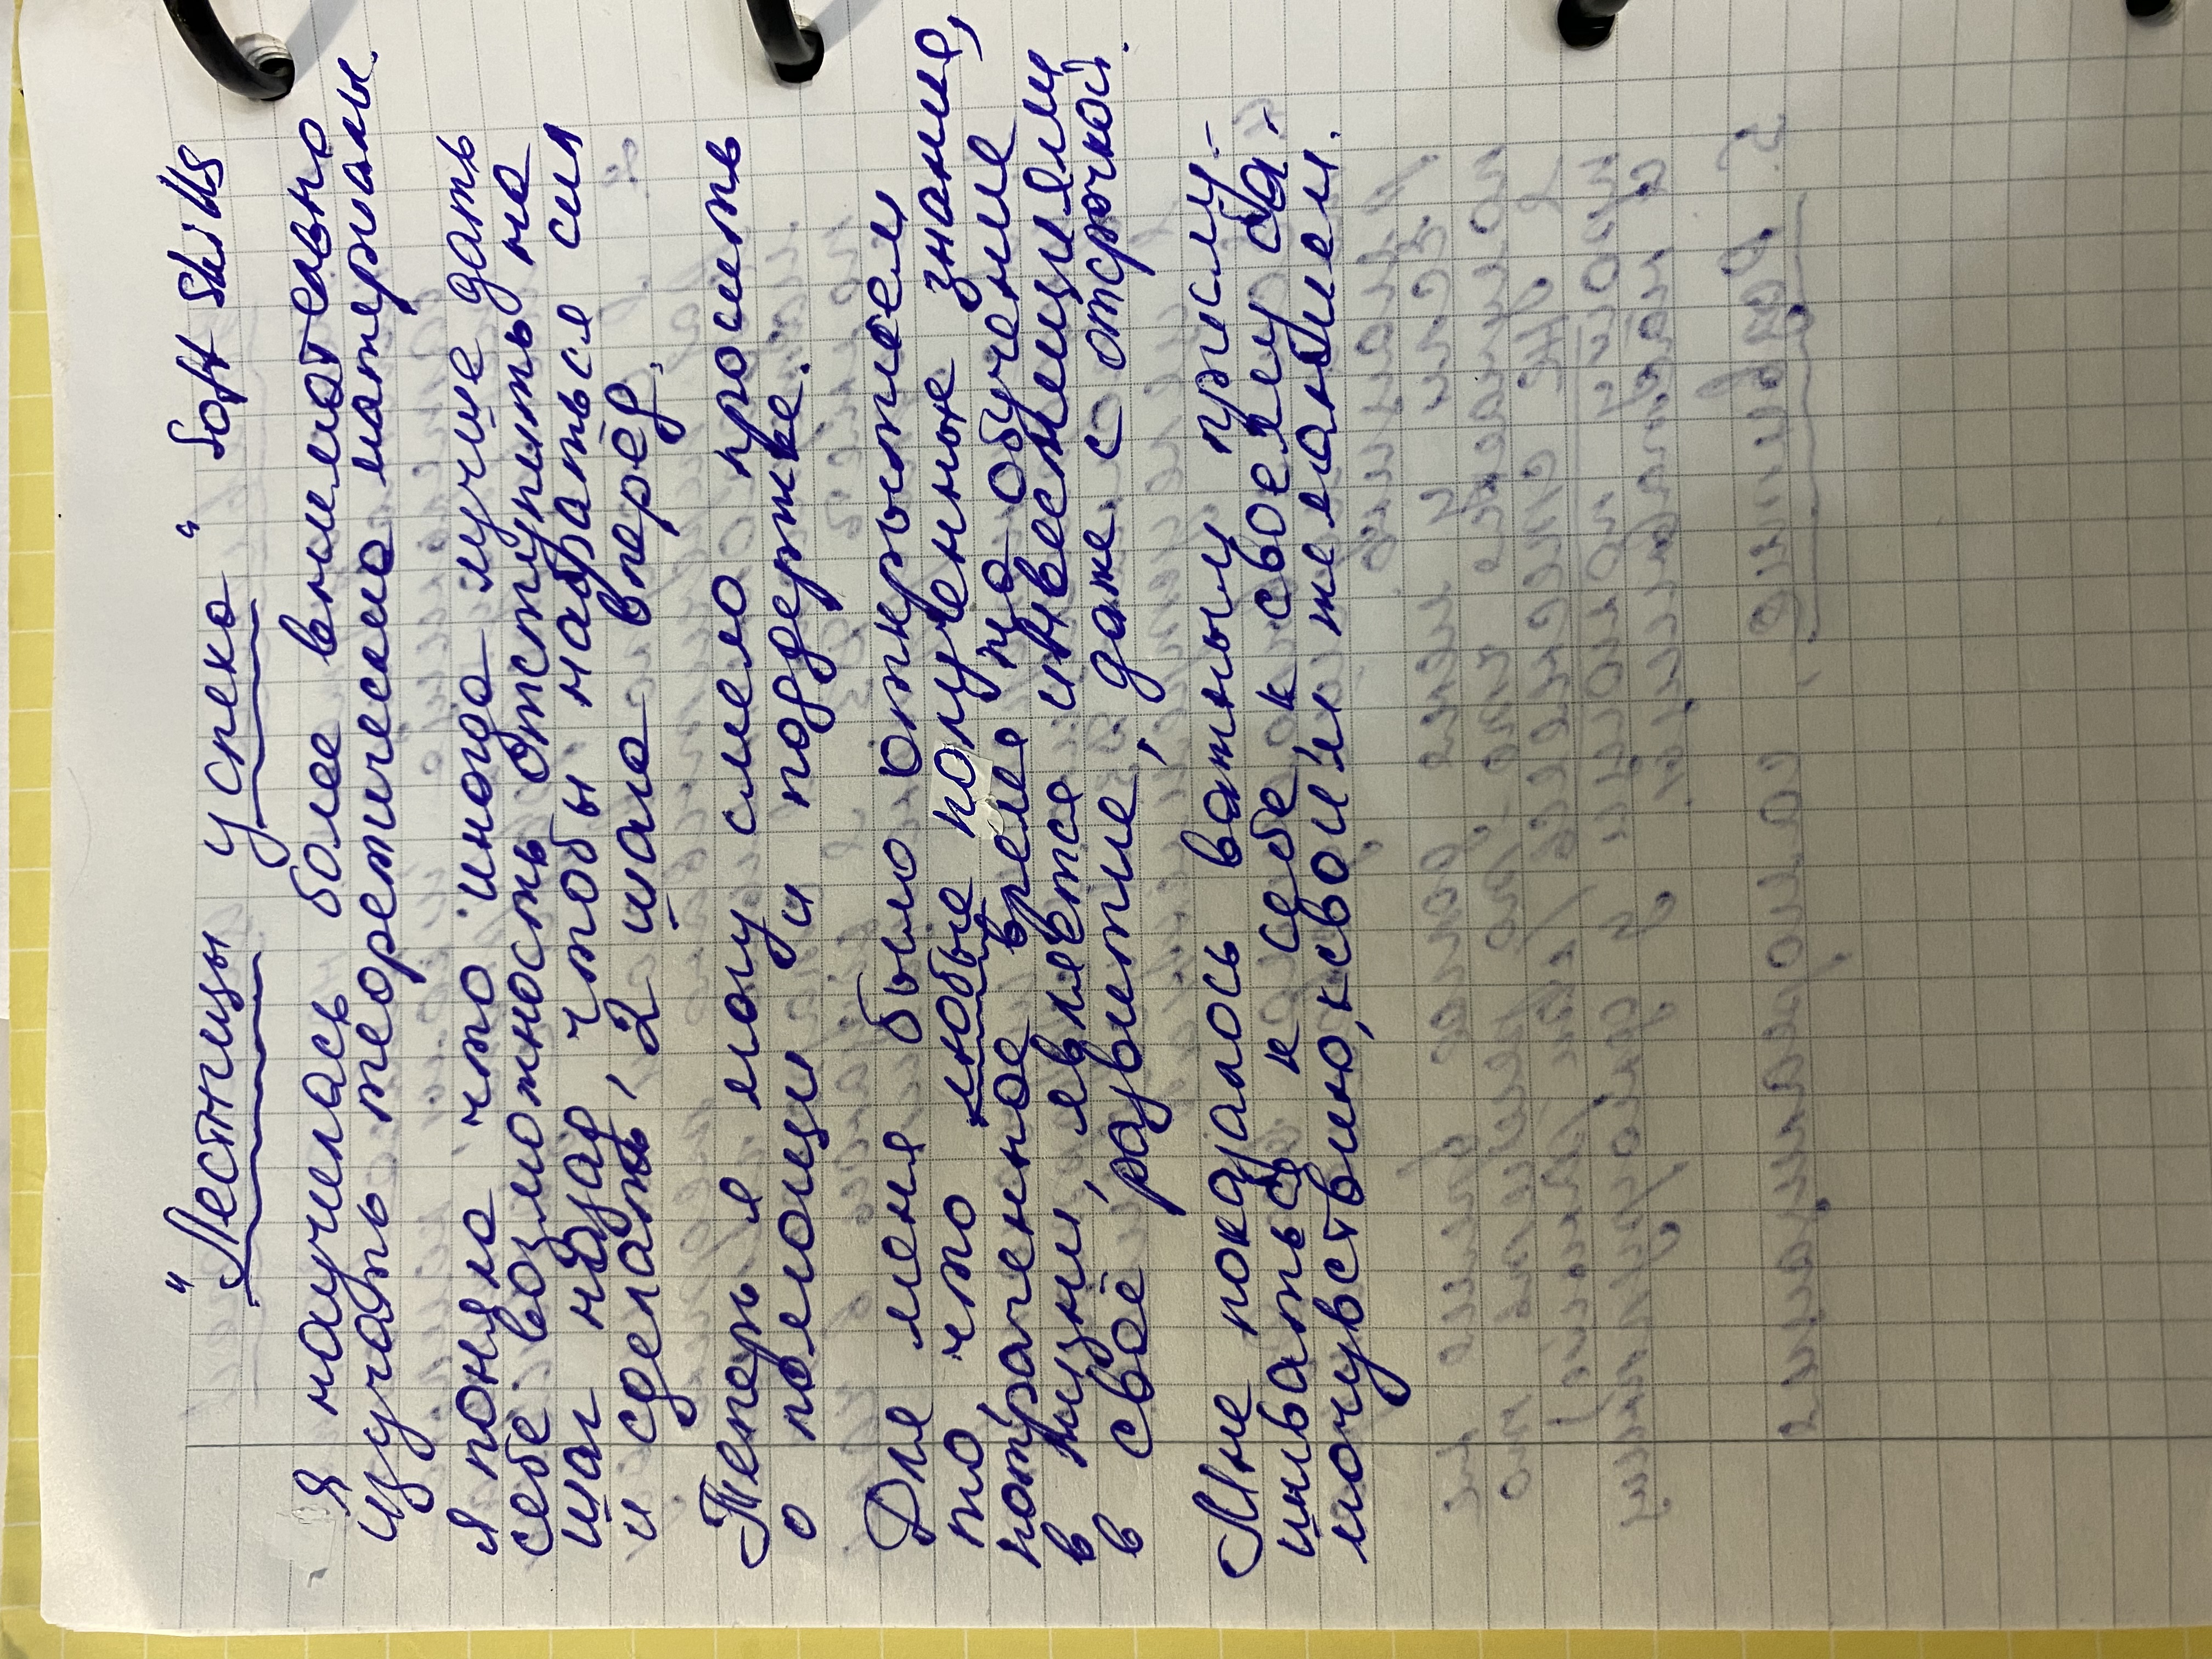 "Лестницы успеха" Soft Skills
Я научилась более внимательно
изучать теоретические материалы.
Я поняла что иногда лучше дать
себе возможность отступить на
шаг назад, чтобы набраться сил
и сделать 2 шага вперёд.
Теперь я могу смело просить
о помощи и поддержке.
Для меня было открытием
то, что любые полученные знания,
потраченное время на обучение
в жизни, является инвестициями
в своё развитие, даже с отсрочкой.
Мне показалось важным прислу-
шиваться к себе, к своему са-
мочувствию, к своим желанием.